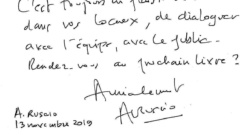 C'est toujours un
dans vos locaux, de dialoguer
avec l'équipe, avec le public.
Rendez-vous au prochain livre ?
Amicalement
ARusaio
A. Rusaio
13 novembre 2019